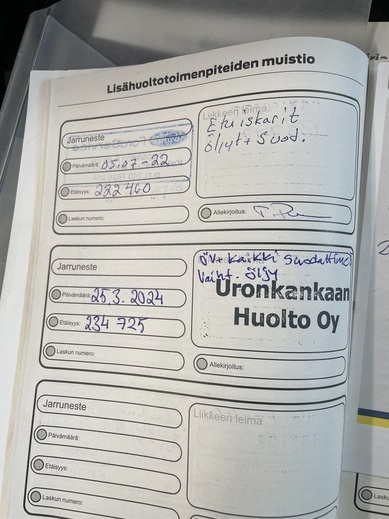 Lisähuoltotoimenpiteiden muistio
Jarruneste
Päivämäärä: 05.07-22
Etäisyys: 232 460
Laskun numero:
Liikkeen leima
Etuiskarit
Öljyt+Suod.
Allekirjoitus:
Jarruneste
Päivämäärä: 25.3.2024
Etäisyys: 234 725
Laskun numero:
ÖV+ kaikki suodattimet
Vaiht. Öljy
Uronkankaan
Huolto Oy
Allekirjoitus:
Jarruneste
Päivämäärä:
Etäisyys:
Laskun numero:
Liikkeen leima
Allekirjoitus: